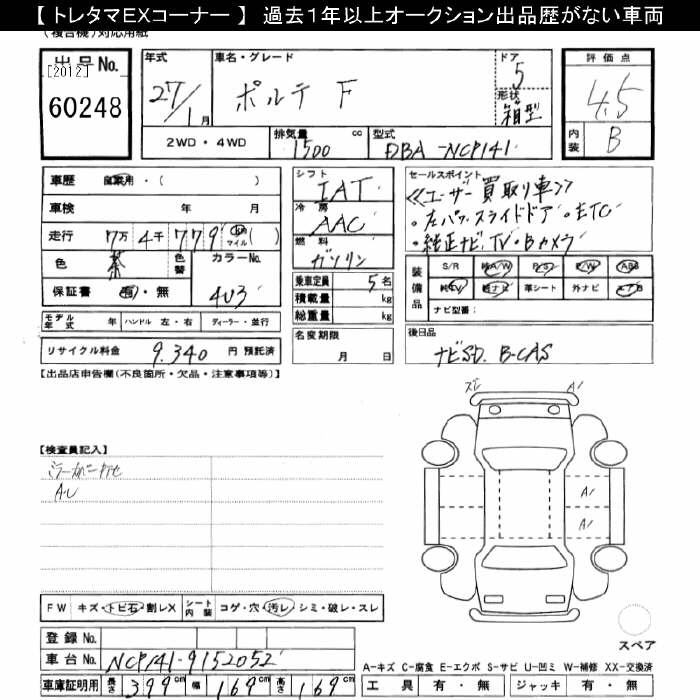 【 トレタマEXコーナー 】 過去1年以上オークション出品歴がない車両
(複合機)対応用紙
出品No.
[2012]
60248
年式
27/1月
車名・グレード
ポルテ F
ドア
5
形状
箱型
評価点
4.5
内装
B
2WD・4WD
排気量
1500 cc
型式
DBA-NCP141
車歴 自家用・( )
車検 年 月
走行 7万 4千 779 km マイル ( )
色 茶
色替
カラーNo.
4U3
保証書 有・無
モデル年式 年
ハンドル 左・右
ディーラー・並行
リサイクル料金 9.340 円 預託済
シフト
IAT
冷房
AAC
燃料
ガソリン
乗車定員 5名
積載量 kg
総重量 kg
名変期限
月 日
セールスポイント
≪ユーザー買取り車≫
・左パワースライドドア・ETC
・純正ナビ・TV・Bカメラ
装備品
S/R 純A/W P/S P/W ABS
純TV 純ナビ 革シート 外ナビ エアB
ナビ型番:
後日品
ナビSD. B-CAS
【出品店申告欄(不良箇所・欠品・注意事項等)】
【検査員記入】
ミラーカバーキカセ
AU
ズレ
A1
A1
A1
FW キズ・トビ石・割レX
シート内装 コゲ・穴・汚レ・シミ・破レ・スレ
登録 No.
車台 No. NCP141-9152052
車庫証明用 長さ 399 cm 幅 169 cm 高さ 169 cm
スペア
A-キズ C-腐食 E-エクボ S-サビ U-凹ミ W-補修 XX-交換済
工具 有・無 ジャッキ 有・無